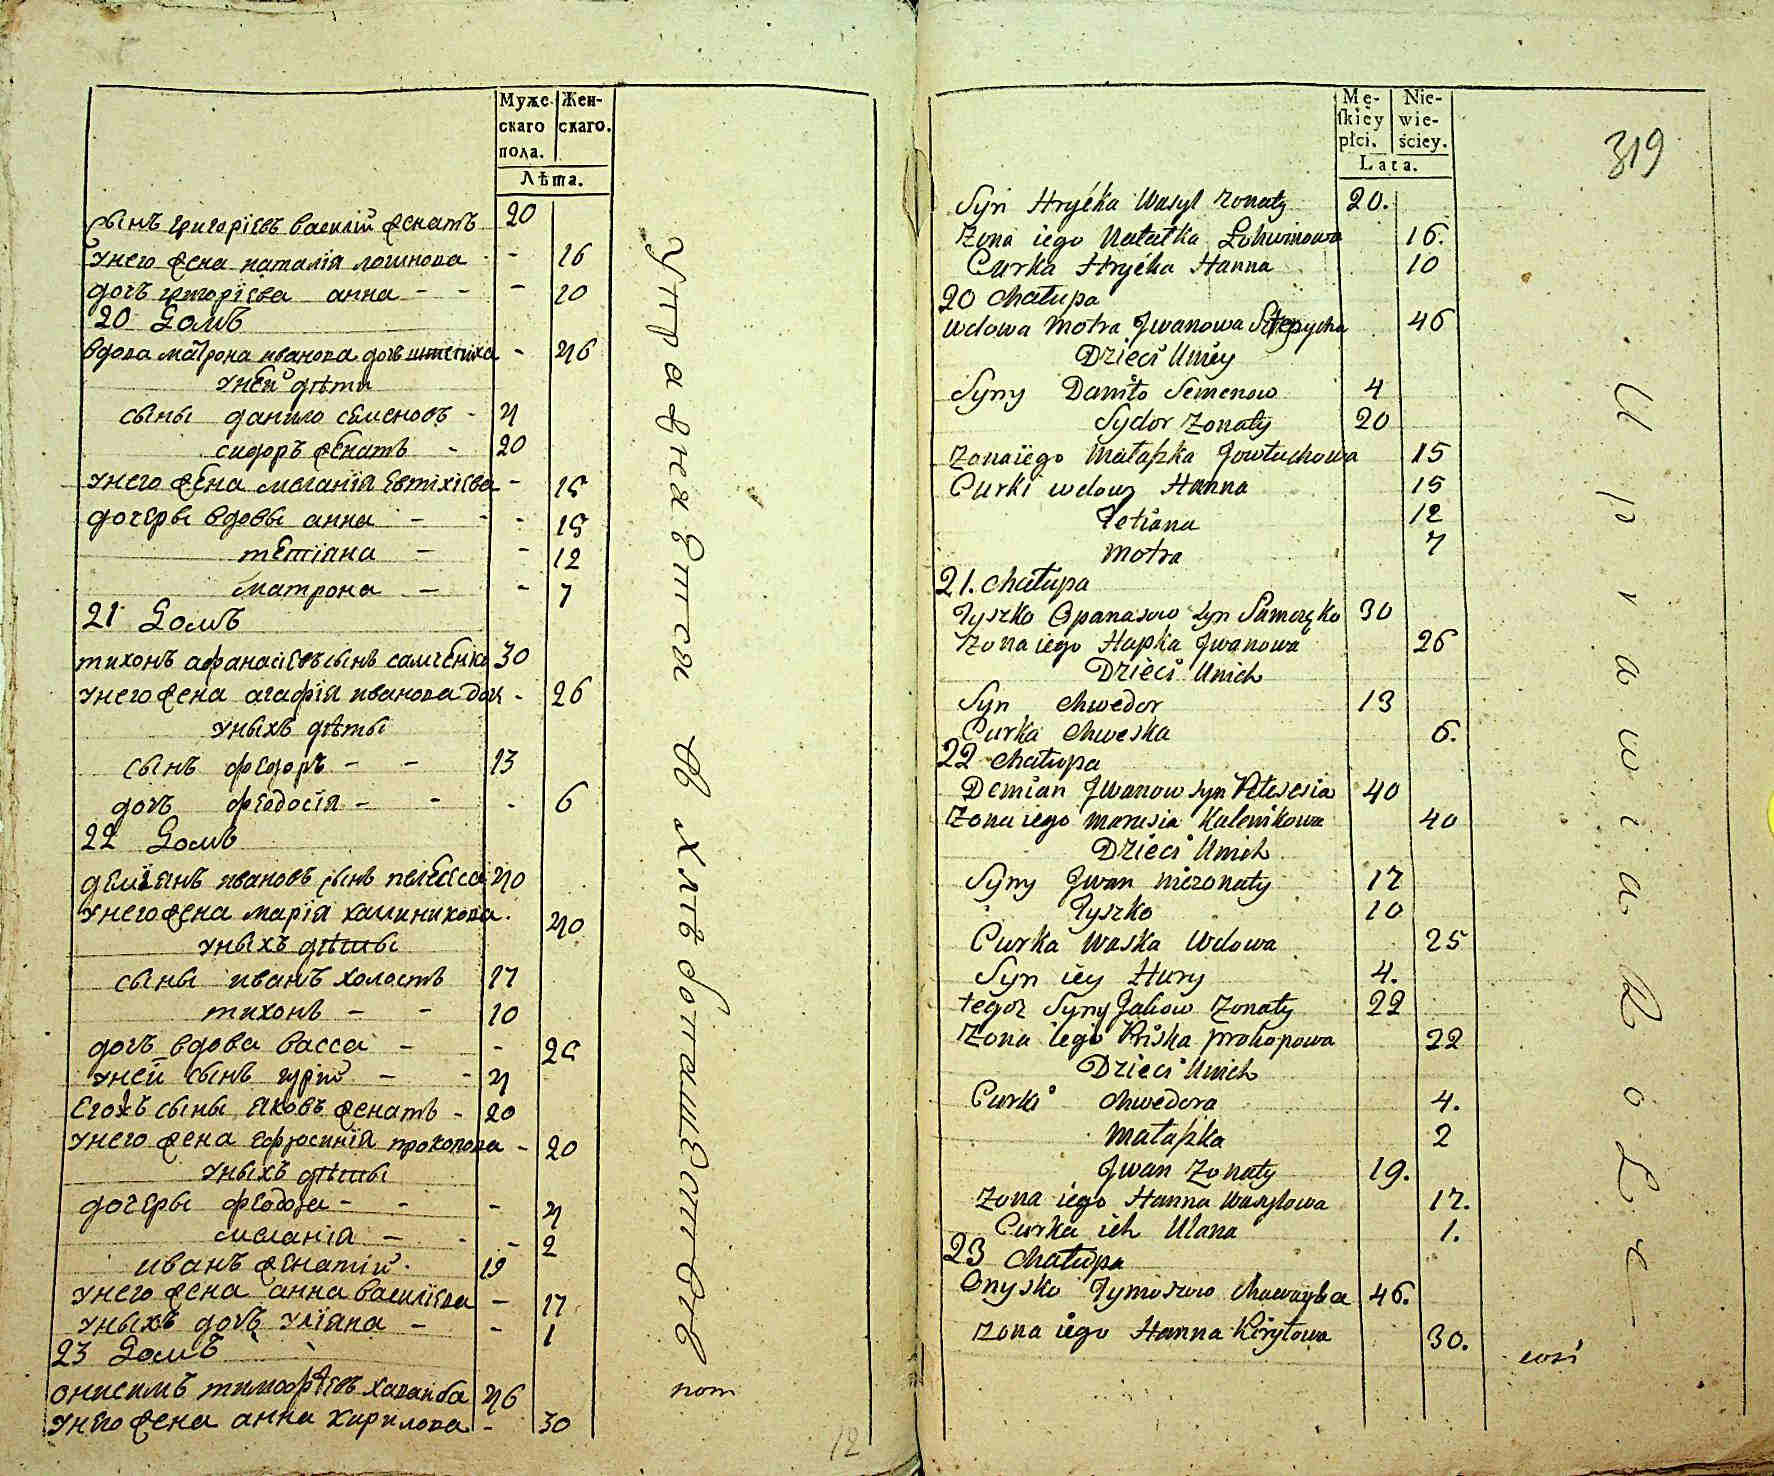 Муже-
скаго
пола.
Жен-
скаго.
Лѣта.
сынъ григорієвъ василій женатъ 20
унего жена наталія логинова - 16
дочъ григорієва анна - - - 10
20 Домъ
вдова матрона иванова дочъ - 46
уней дѣти
сыны данило семеновъ - 4
сидоръ женатъ - 20
унего жена меланія евтихіева - 15
дочеры вдовы анна - - - 15
тетіана - - 12
матрона - - 7
21 Домъ
тихонъ афанасіевъ сынъ самченко 30
унего жена агафія иванова доч - 26
уныхъ дѣты
сынъ федоръ - - 13
дочъ феодосія - - - 6
22 Домъ
деміянъ ивановъ сынъ пелесеса 40
унего жена марія калиникова. 40
уныхъ дѣты
сыны иванъ холостъ 17
тихонъ - - 10
дочъ вдова васса - - 25
уней сынъ гурій - - 4
егожъ сыны яковъ женатъ - 20
унего жена ефросинія прокопова - 20
уныхъ дѣты
дочеры феодора - - - 4
меланія - - - 2
иванъ женатій. 19
унего жена анна василіева - 17
уныхъ дочъ уліяна - - 1
23 Домъ
онисимъ тимофѣевъ хаванба 46
унего жена анна кирилова - 30
Упражняется въ хлѣбопашествѣ
пот
12
Mę-
skiey
płci.
Nie-
wie-
ściey.
Lata.
319
Syn Hryćka Wasyl zonaty 20.
Zona iego Natałka Lohwinowa 16.
Curka Hryćka Hanna 10
20 chałupa
wdowa motra Jwanowa 46
Dzieci Uniey
Syny Daniło Semenow 4
Sydor Zonaty 20
Zona iego Małaszka Jowtuchowa 15
Curki wdowy Hanna 15
Tetiana 12
motra 7
21. chałupa
Tyszko Opanasow Syn Samczęko 30
Zona iego Hapka Jwanowa 26
Dzieci Unich
Syn chwedor 13
Curka chweska 6.
22 chałupa
Demian Jwanow syn Pelesesia 40
Zona iego marusia Kalenikowa 40
Dzieci Unich
Syny Jwan niezonaty 17
Tyszko 10
Curka Waska Wdowa 25
Syn iey Hury 4.
tegoz Syny Jakow Zonaty 22
Zona iego Priska prokopowa 22
Dzieci Unich
Curki chwedora 4.
Małaszka 2
Jwan Zonaty 19.
Zona iego Hanna Wasylowa 17.
Curka ich Ulana 1.
23 chałupa
Onysko Tymoszow chawanba 46.
Zona iego Hanna Kiryłowa 30.
Uprawia Role